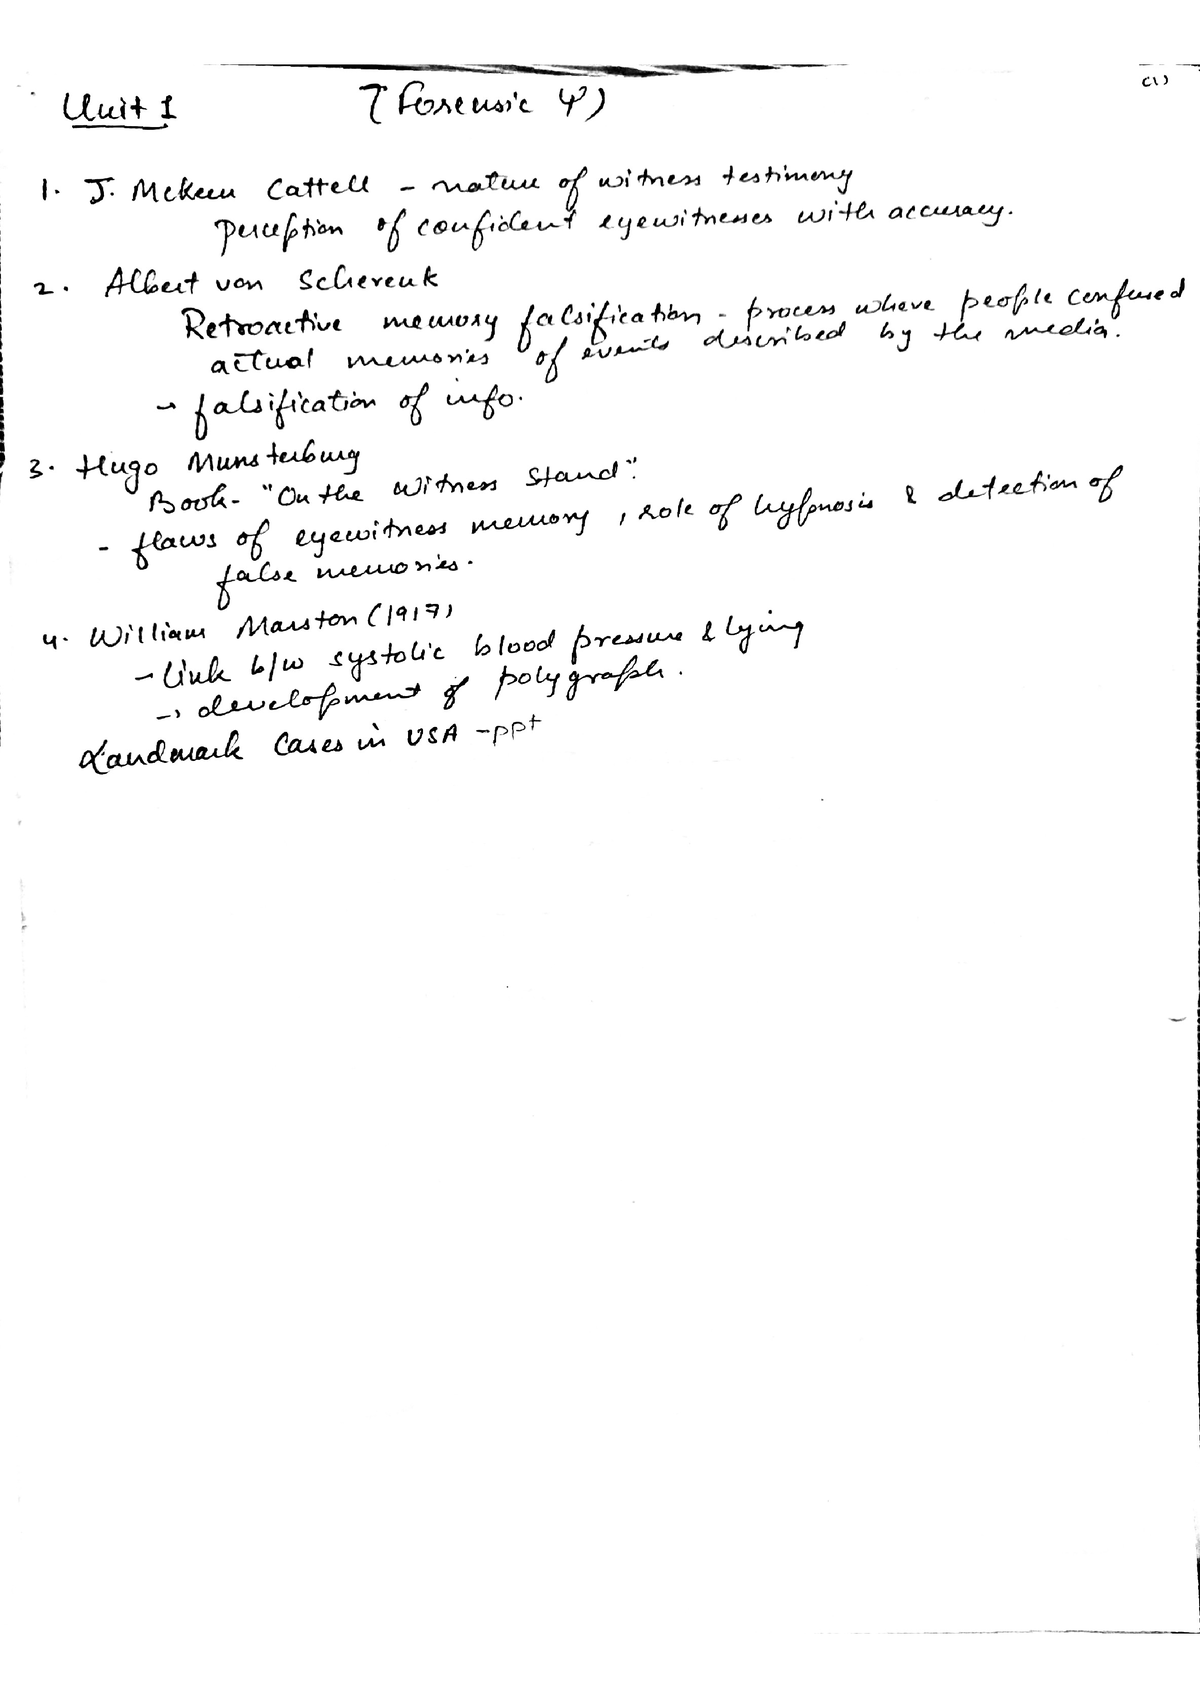 (1)
Unit 1 (Forensic Ψ)
1. J. McKeen Cattell - nature of witness testimony
Perception of confident eyewitnesses with accuracy.
2. Albert von Scherenk
Retroactive memory falsification - process where people confused
actual memories of events described by the media.
→ falsification of info.
3. Hugo Munsterburg
Book - "On the Witness Stand".
- flaws of eyewitness memory, role of hypnosis & detection of
false memories.
4. William Marston (1917)
- link b/w systolic blood pressure & lying
→ development of polygraph.
Landmark Cases in USA - ppt